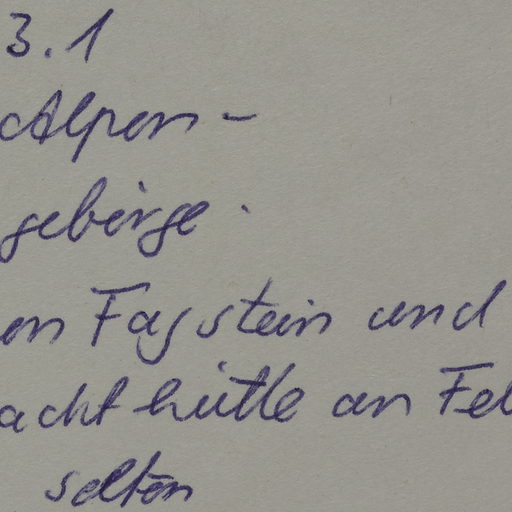 3.1
Alpen-
gebirge.
en Fagstein und
acht hütte an Fel
selten